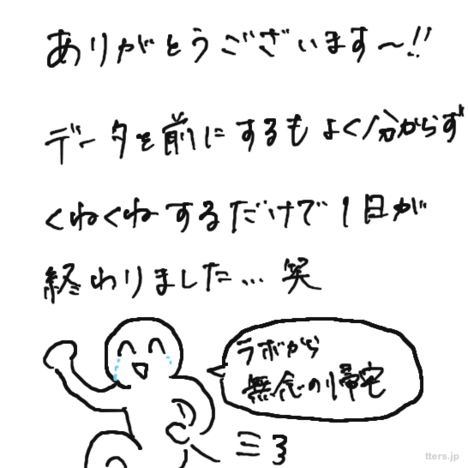 ありがとうございます〜!!
データを前にするもよく分からず
くねくねするだけで1日が
終わりました... 笑
ラボから
無念の帰宅
tters.jp